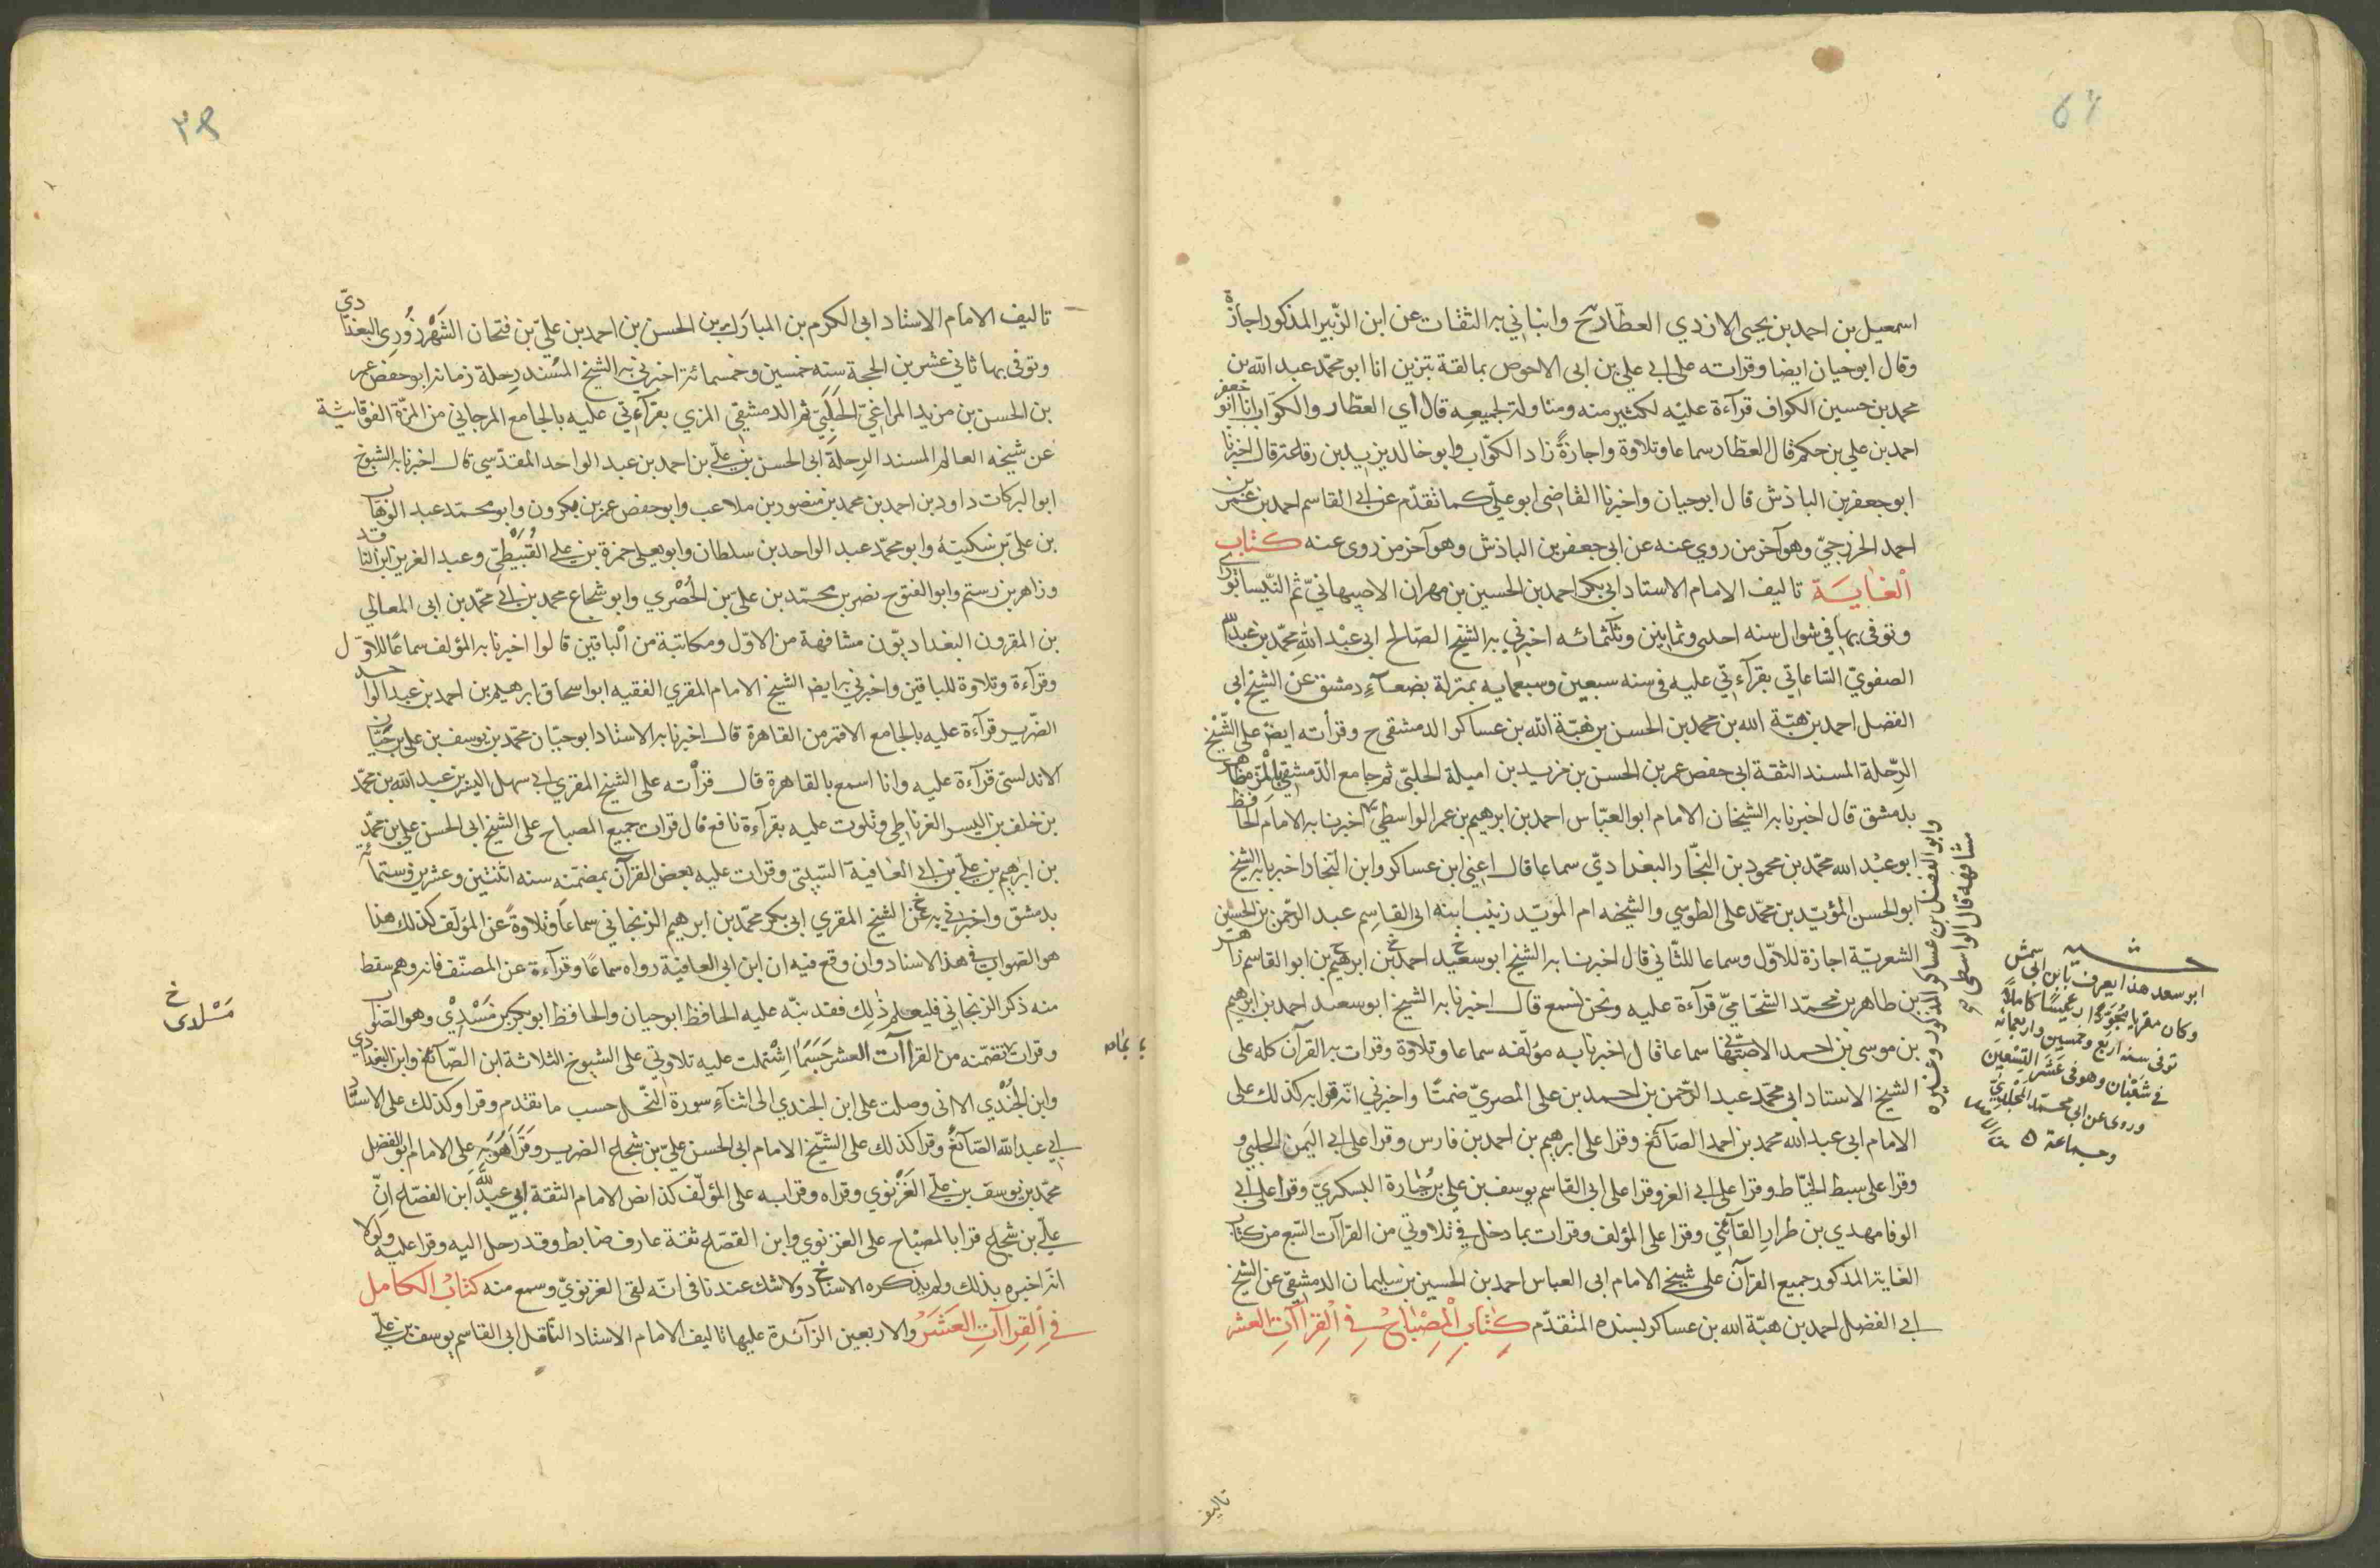 اسمعيل بن احمد بن يحيى الازدي العطار ح وانباني به الثقات عن ابن الزبير المذكور اجازة
وقال ابو حيان ايضا وقراته على ابي علي بن ابى الاحوص بمالقة انا ابو محمد عبد الله بن
محمد بن حسين الكواف قرآءة عليه لكثير منه ومناولة لجميعه قال أي العطار والكواب انا ابو جعفر
احمد بن علي بن حكم قال العطار سماعا وتلاوة واجازةً زاد الكواب وابو خالد يزيد بن رفاعة قال اخبرنا
ابو جعفر بن الباذش قال ابو حيان واخبرنا القاضى ابو علي كما تقدم عن ابي القاسم احمد بن عمر بن
احمد الخزرجي وهو آخر من روي عنه عن ابى جعفر بن الباذش وهو آخر من روى عنه كتاب
الغاية تاليف الامام الاستاد ابي بكر احمد بن الحسين بن مهران الاصبهاني ثم النيسابوري
وتوفى بها في شوال سنه احدى وثمانين وثلثمائه اخبرني به الشيخ الصالح ابى عبد الله محمد بن عبد الله
الصفوي الساعاتي بقرآءتي عليه فى سنه سبعين وسبعمايه بمنزله بصنعآء دمشق عن الشيخ ابي
الفضل احمد بن هبة الله بن محمد بن الحسن بن هبة الله بن عساكر الدمشقي ح وقرأته ايضا على الشيخ
الرحلة المسند الثقة ابى حفص عمر بن الحسن بن مزيد بن اميلة الحلبي ثم الدمشقي بالمزة
بدمشق قال اخبرنا به الشيخان الامام ابو العباس احمد بن ابرهيم بن عمر الواسطي اخبرنا به الامام الحافظ
ابو عبد الله محمد بن محمود بن النجار البغدادي سماعا قال اعني ابن عساكر وابن النجار اخبرنا به الشيخ
ابو الحسن المؤيد بن محمد على الطوسي والشيخه ام المويد زينب ابنه ابى القاسم عبد الرحمن بن الحسين
الشعرية اجازة للاول وسماعا للثاني قال اخبرنا به الشيخ ابو سعيد احمد بن ابرهيم بن ابو القاسم زاهر
بن طاهر بن محمد الشحامي قرآءة عليه ونحن نسمع قال اخبرنا به الشيخ ابو سعيد احمد بن ابرهيم
بن موسى بن احمد الاصبهاني سماعا قال اخبرنا به مؤلفه سماعا وتلاوة وقرات به القرآن كله على
الشيخ الاستاد ابى محمد عبد الرحمن بن احمد بن على المصري ضمنًا واخبرني انه قرا به كذلك على
الامام ابى عبد الله محمد بن احمد الصآئغ وقرا على ابرهيم بن احمد بن فارس وقرا على ابي اليمن الحلبي و
وقرا على سبط الخياط وقرا على ابي العز وقرا على ابى القاسم يوسف بن علي بن جبارة البسكري وقرا على ابي
الوفا مهدي بن طرار القآئني وقرا على المؤلف وقرات بما دخل في تلاوتي من القرآآت السبع من كتاب
الغاية المذكور جميع القرآن على شيخي الامام ابى العباس احمد بن الحسين بن سليمان الدمشقي عن الشيخ
ابي الفضل احمد بن هبة الله بن عساكر بسنده المتقدم كتاب المصباح في القراآت العشر
وابو الفضل بن عساكر المذكور وغيره
مشافهة قال الواسطي
حاشيه
ابو سعد هذا يعرف بابن ابى شمس
وكان مقريا مجودا رئيسا كاملا
توفى سنه اربع وخمسين واربعمائه
في شعبان وهو في عشر التسعين
وروى عن ابى محمد المخلدي
وجماعة
تاليف
٣٨
تاليف الامام الاستاد ابى الكرم بن المبارك بن الحسن بن احمد بن علي بن فتحان الشهرزوري البغدادي
وتوفى بها ثاني عشرين الحجة سنه خمسين وخمسمائة اخبرني به الشيخ المسند رحلة زمانه ابو حفص عمر
بن الحسن بن مزيد المراغي الحلبي ثم الدمشقي المزي بقرآءتي عليه بالجامع المرجاني من المزة الفوقانية
عن شيخه العالم المسند الرحلة ابى الحسن بن علي بن احمد بن عبد الواحد المقدسي قال اخبرنا به الشيوخ
ابو البركات داود بن احمد بن محمد بن منصور بن ملاعب وابو حفص عمر بن بكرون وابو محمد عبد الوهاب
بن علي بن سكينة وابو محمد عبد الواحد بن سلطان وابو يعلى حمزة بن علي القبيطي وعبد العزيز ابن الناقد
وزاهر بن رستم وابو الفتوح نصر بن محمد بن علي بن الحصري وابو شجاع محمد بن ابي محمد بن ابى المعالي
بن المقرون البغداديون مشافهة من الاول ومكاتبة من الباقين قالوا اخبرنا به المؤلف سماعا للاول
وقرآءة وتلاوة للباقين واخبرني به ايضا الشيخ الامام المقري الفقيه ابو اسحاق ابرهيم بن احمد بن عبد الواحد
الضرير قرآءة عليه بالجامع الاقمر من القاهرة قال اخبرنا به الاستاد ابو حيان محمد بن يوسف بن على بن حيان
الاندلسي قرآءة عليه وانا اسمع بالقاهرة قال قرأته على الشيخ المقري ابي سهل اليسر بن عبد الله بن محمد
بن خلف بن اليسر الغرناطي وتلوت عليه بقرآءة نافع قال قرات جميع المصباح على الشيخ ابى الحسن علي بن محمد
بن ابرهيم بن علي بن ابي العافية السبتي وقرات عليه بعض القرآن بمضمنه سنه اثنتين وعشرين وستمائة
بدمشق واخبرني به عن الشيخ المقري ابى بكر محمد بن ابرهيم الزنجاني سماعا وتلاوة عن المؤلف كذلك هذا
هو الصواب فى هذا الاسناد وان وقع فيه ان ابن ابى العافية رواه سماعًا وقرآءة عن المصنف فانه وهم سقط
منه ذكر الزنجاني فليعلم ذلك فقد نبه عليه الحافظ ابو حيان والحافظ ابو بكر بن مسدي وهو الصواب
وقرات بما تضمنه من القرآآت العشر حسبما اشتملت عليه تلاوتي على الشيوخ الثلاثة ابن الصآئغ وابن البغدادي
وابن الجندي الا انى وصلت على ابن الجندي الى اثنآء سورة النحل حسب ما تقدم وقراو كذلك على الاستاد
ابي عبد الله الصآئغ وقرا كذلك على الشيخ الامام ابى الحسن علي بن شجاع الضرير وقرا هو به على الامام ابو الفضل
محمد بن يوسف بن علي الغزنوي وقراه وقرا به على المؤلف كذا نص الامام الثقة ابي عبد الله ابن القصاع ان
علي بن شجاع قرا بالمصباح على الغزنوي وابن القصاع ثقة عارف ضابط وقد رحل اليه وقرا عليه ولولا
انه اخبره بذلك ولم يذكره الاستاد ولا شك عندنا فى انه لقى الغزنوي وسمع منه كتاب الكامل
في القراآت العشر والاربعين الزآئدة عليها تاليف الامام الاستاد الناقل ابى القاسم يوسف بن علي
مسدى خ